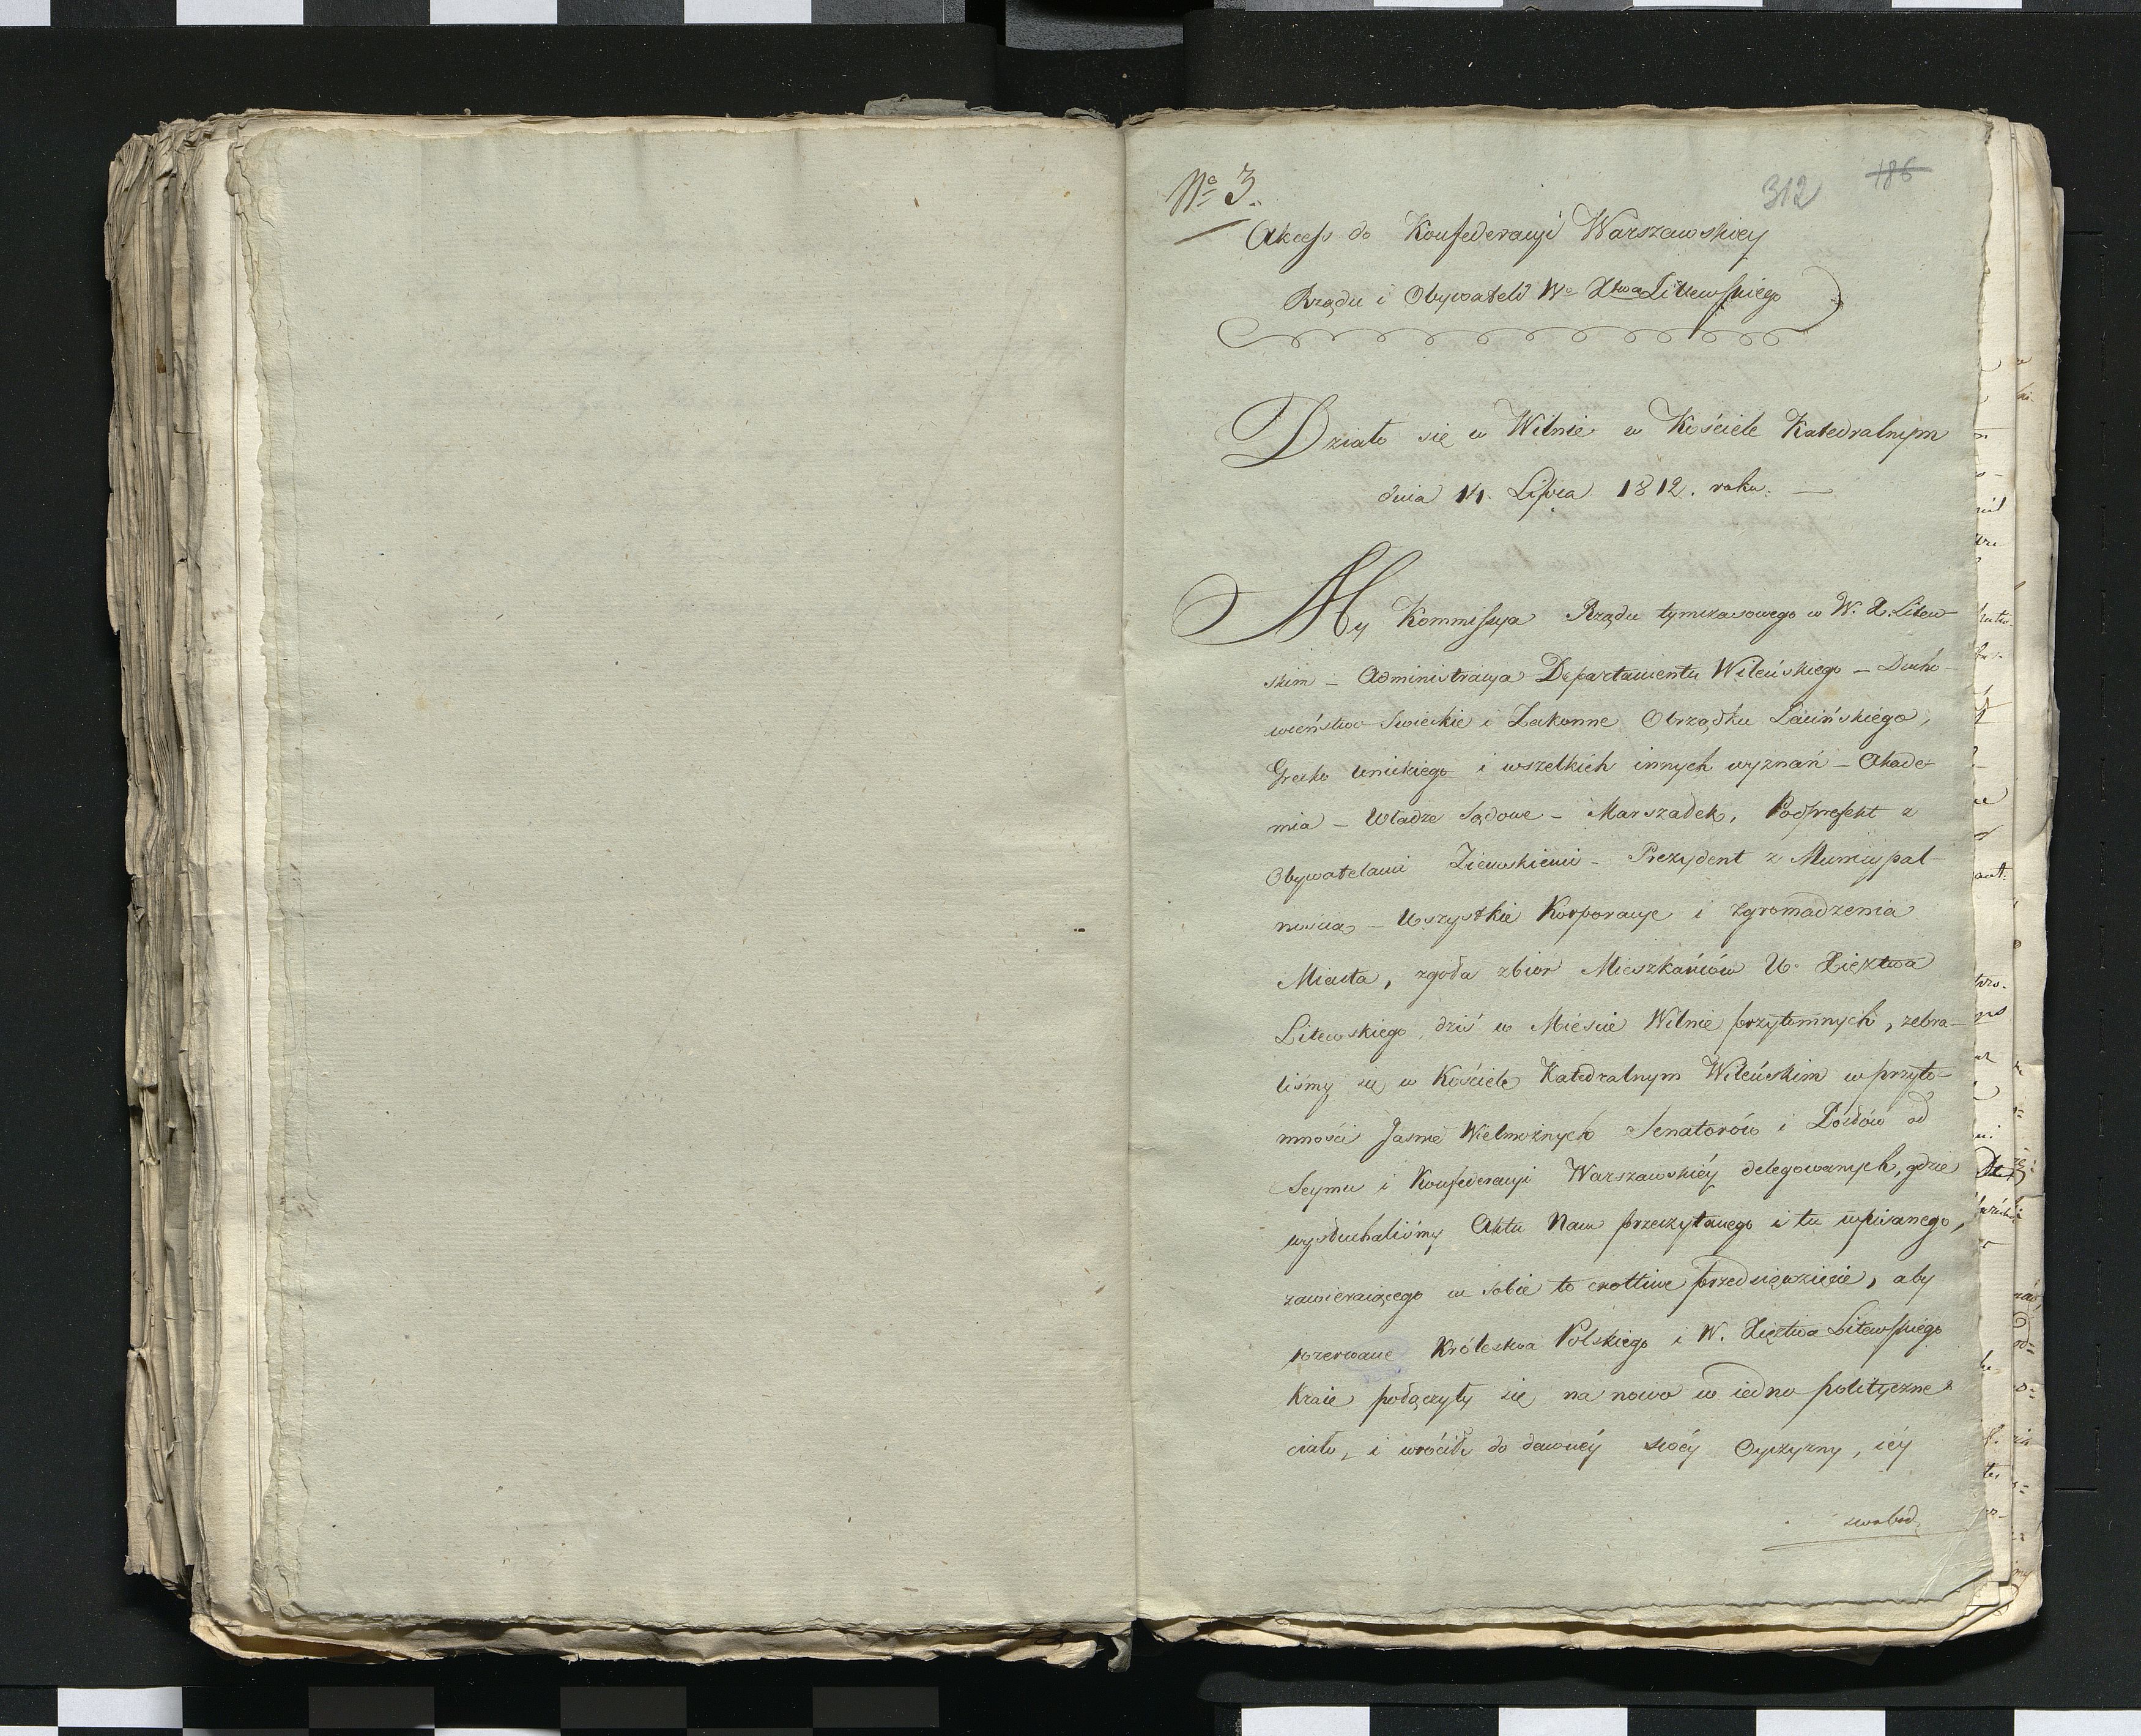 № 3.
312 186
Akcess do Konfederacyi Warszawskiey
Rządu i Obywateli Wo Xtwa Litewskiego
Działo się w Wilnie w Kościele Katedralnym
dnia 14. Lipca 1812. roku. —
My Kommissya Rządu tymczasowego w W. X. Litew-
skim — Administracya Departamentu Wileńskiego — Ducho-
wieństwo Swieckie i Zakonne Obrządku Łacińskiego,
Grecko Unickiego i wszelkich innych wyznań — Akade-
mia — Władze Sądowe — Marszałek, Podprefekt z
Obywatelami Ziemskiemi — Prezydent z Municypal-
nością — Wszystkie Korporacye i Zgromadzenia
Miasta, zgoła zbior Mieszkańców W. Xięztwa
Litewskiego, dziś w Mieście Wilnie przytomnych, zebra-
liśmy się w Kościele Katedralnym Wileńskim w przyto-
mności Jasnie Wielmożnych Senatorów i Posłów od
Seymu i Konfederacyi Warszawskiéy delegowanych, gdzie
wysłuchaliśmy Aktu Nam przeczytanego i tu wpisanego,
zawieraiącego w sobie to cnotliwe przedsięwzięcie, aby
rozerwane Królestwa Polskiego i W. Xięztwa Litewskiego
Kraie połączyły się na nowo w iedno polityczne
ciało, i wróciły do dawnéy swéy Oyczyzny, iéy
swobód